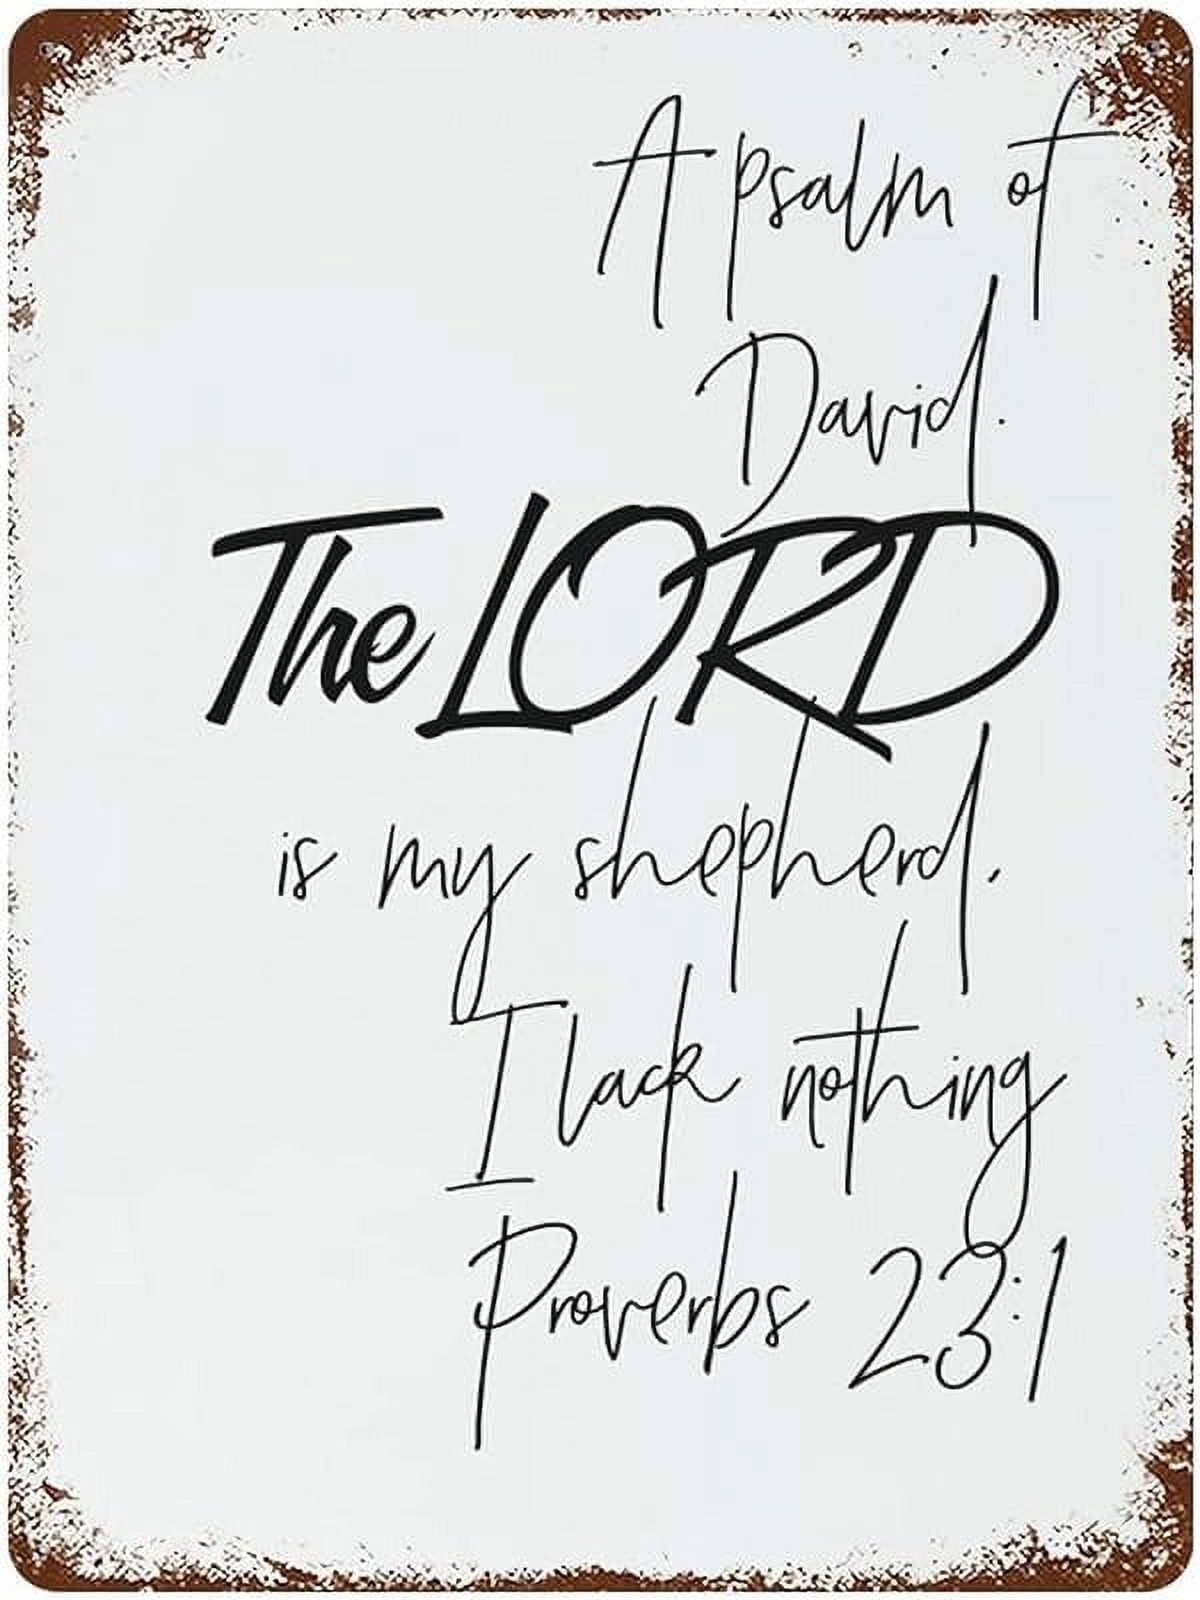 A psalm of
David.
The LORD
is my shepherd.
I lack nothing
Proverbs 23:1